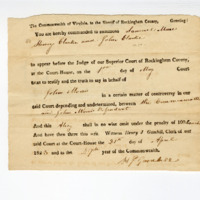 The Commonwealth of Virginia, to the Sheriff of Rockingham County, Greeting:
You are hereby commanded to summon Samuel Moore
Henry and John
to appear before the Judge of our Superior Court of Rockingham County,
at the Court House, on the day of May Court
next to testify and the truth to say in behalf of
John Moore
in a certain matter of controversy in our
said Court depending and undetermined, between the Commonwealth
and John Moore Defendant
And this they shall in no wise omit under the penalty of 100
And have then there this writ. Witness Henry J Gambill, Clerk of our
said Court at the Court-House the 3 day of April
18 and in the year of the Commonwealth.
H J Gambill